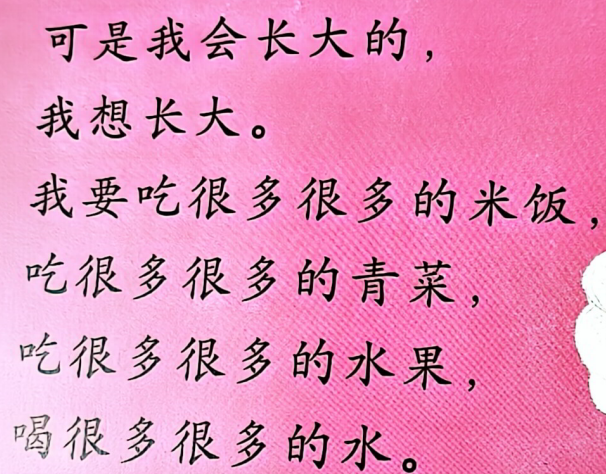 可是我会长大的，
我想长大。
我要吃很多很多的米饭，
吃很多很多的青菜，
吃很多很多的水果，
喝很多很多的水。